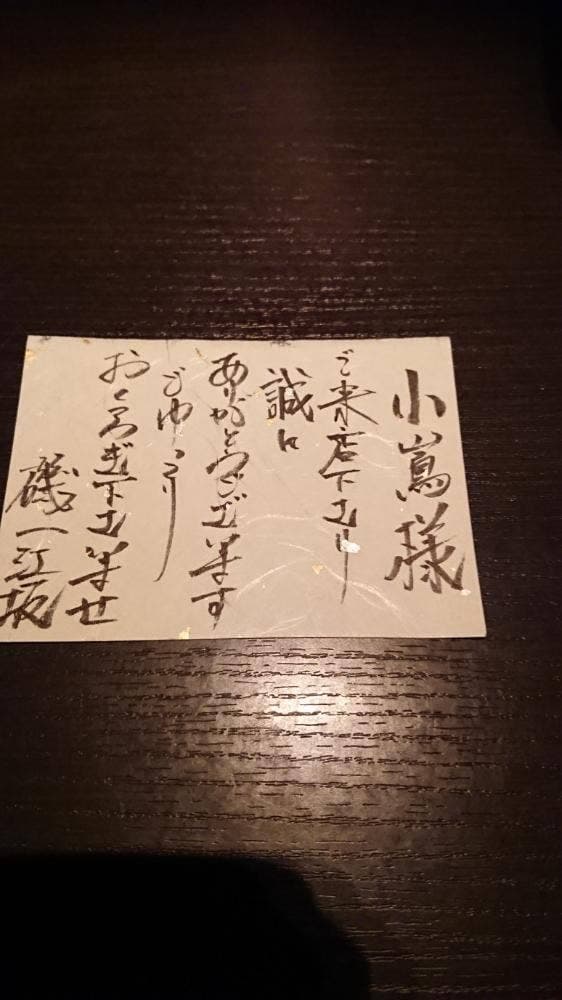 小嶌様
ご来店下さり
誠に
ありがとうございます
ごゆっくり
おくつろぎ下さいませ
磯一江坂